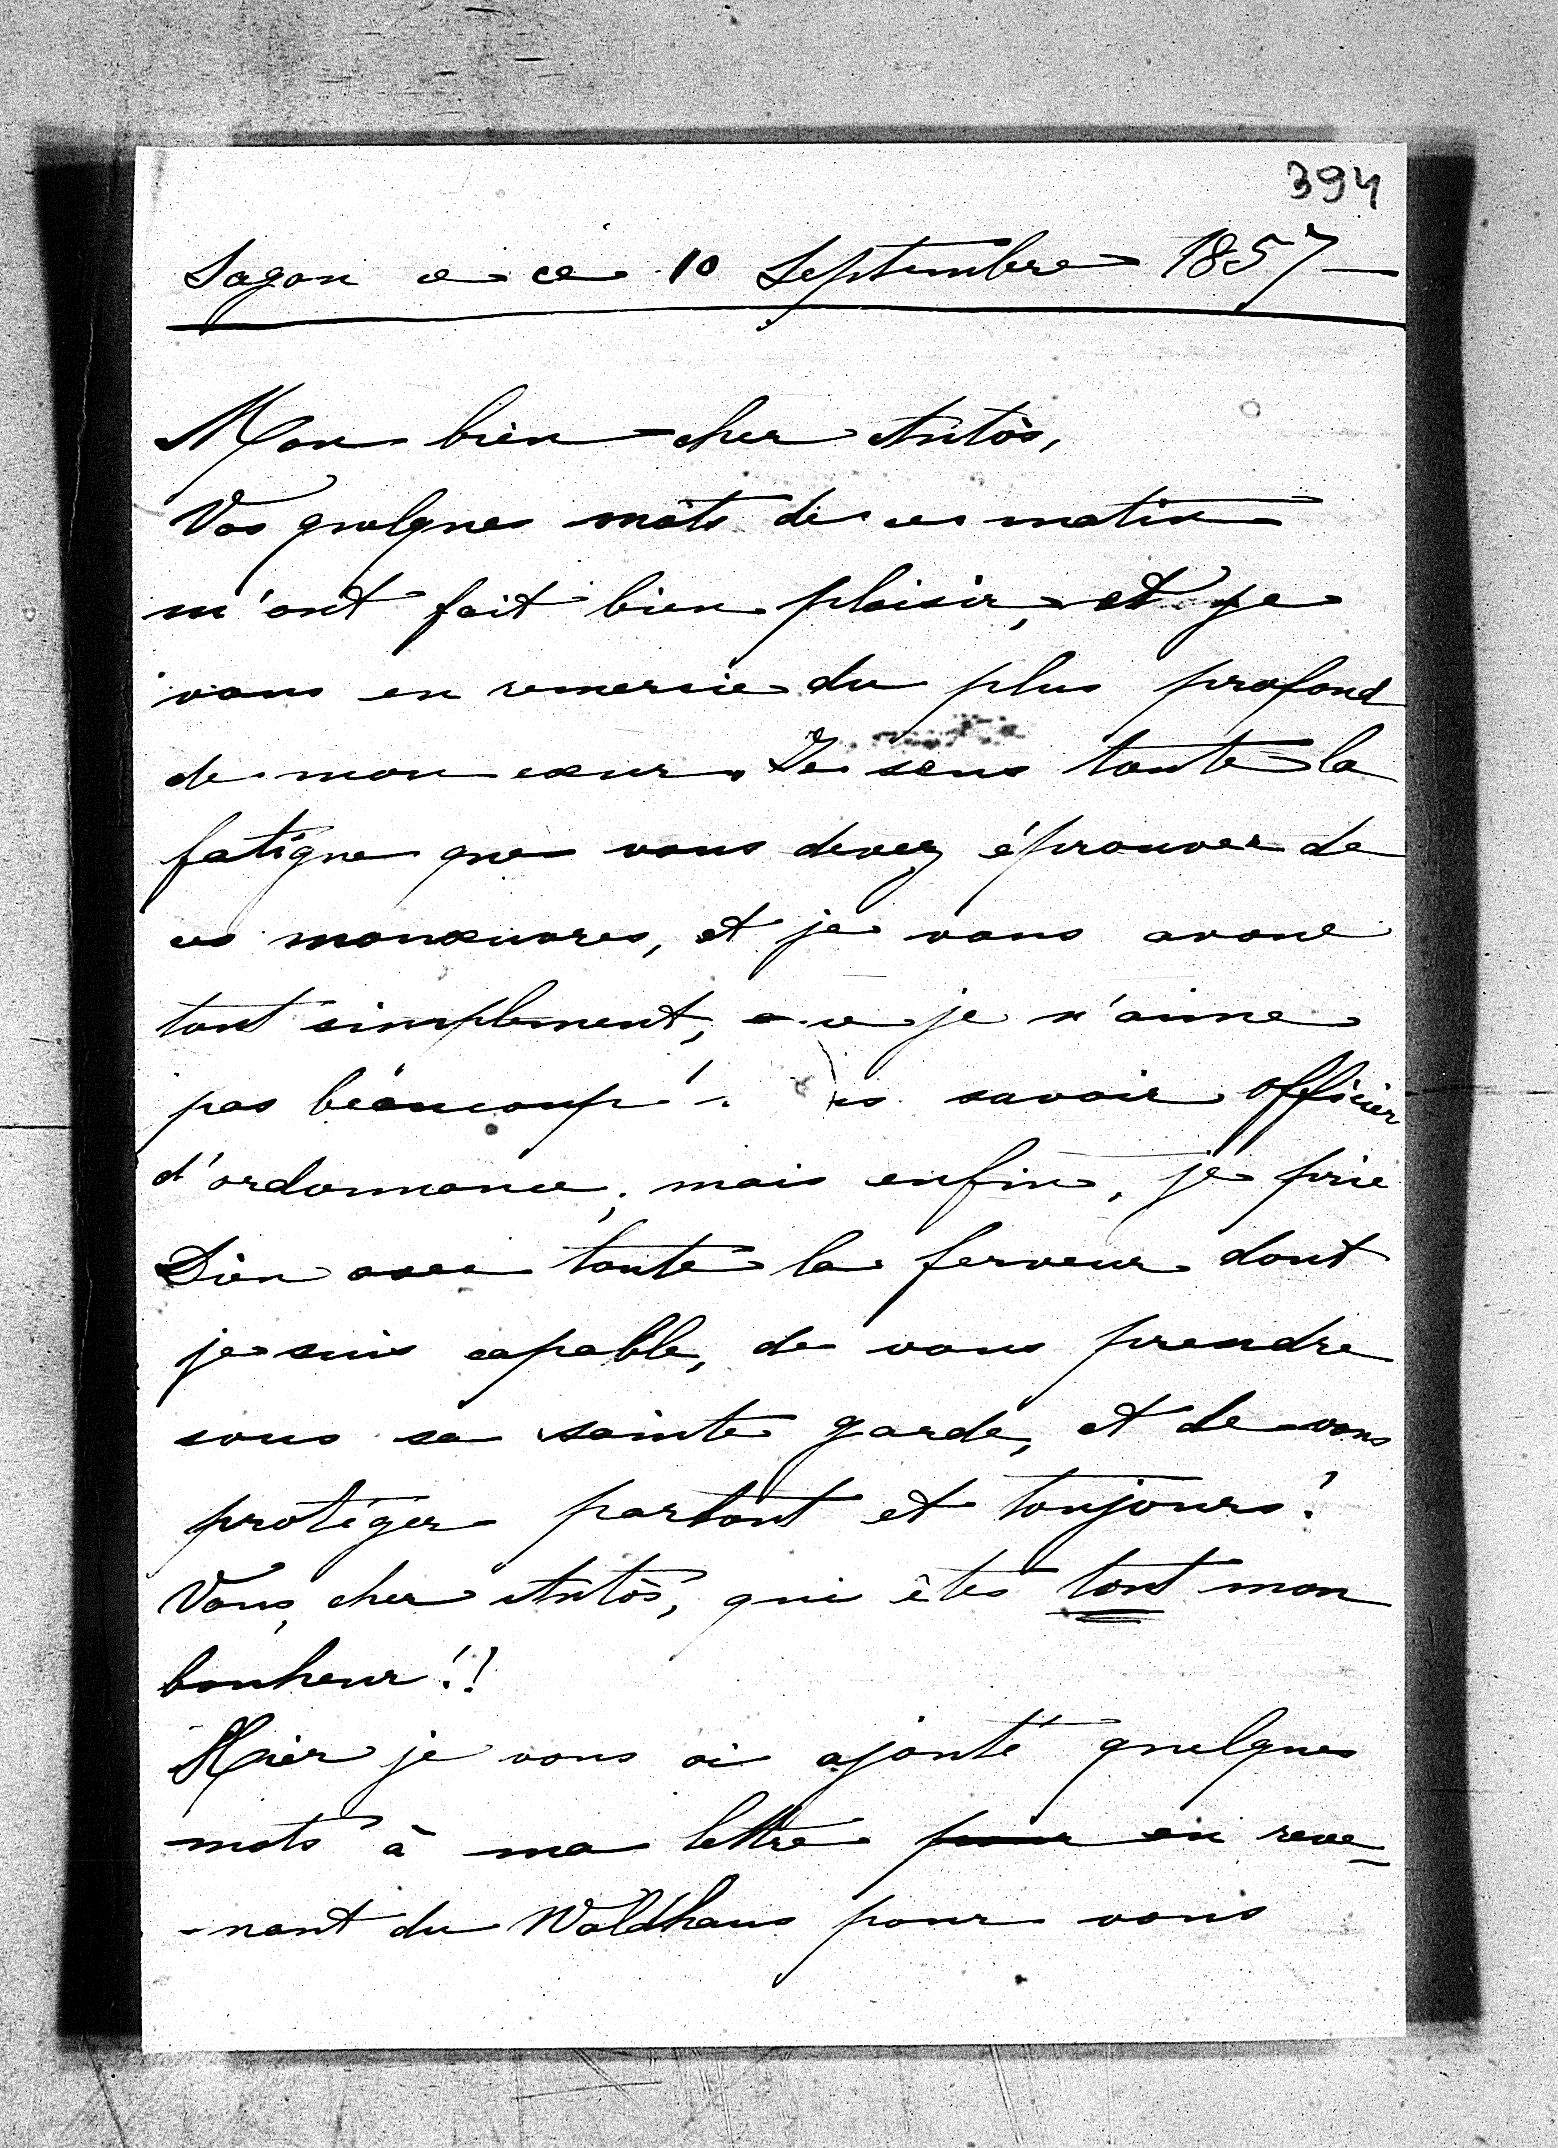 394
Sagan ce 10 Septembre 1857 —
Mon bien cher Antòs,
Vos quelques mots de ce matin
m'ont fait bien plaisir, et je
vous en remercie du plus profond
de mon cœur. Je sens toute la
fatigue que vous devez éprouver de
ces manœuvres, et je vous avoue
tout simplement, que je n'aime
pas beaucoup savoir officier
d'ordonnance, mais enfin, je prie
Dieu avec toute la ferveur dont
je suis capable, de vous prendre
sous sa sainte garde, et de vous
protéger partout et toujours!
Vous, cher Antòs, qui êtes tout mon
bonheur!!
Hier je vous ai ajouté quelques
mots à ma lettre pour en reve-
-nant du Waldhaus pour vous